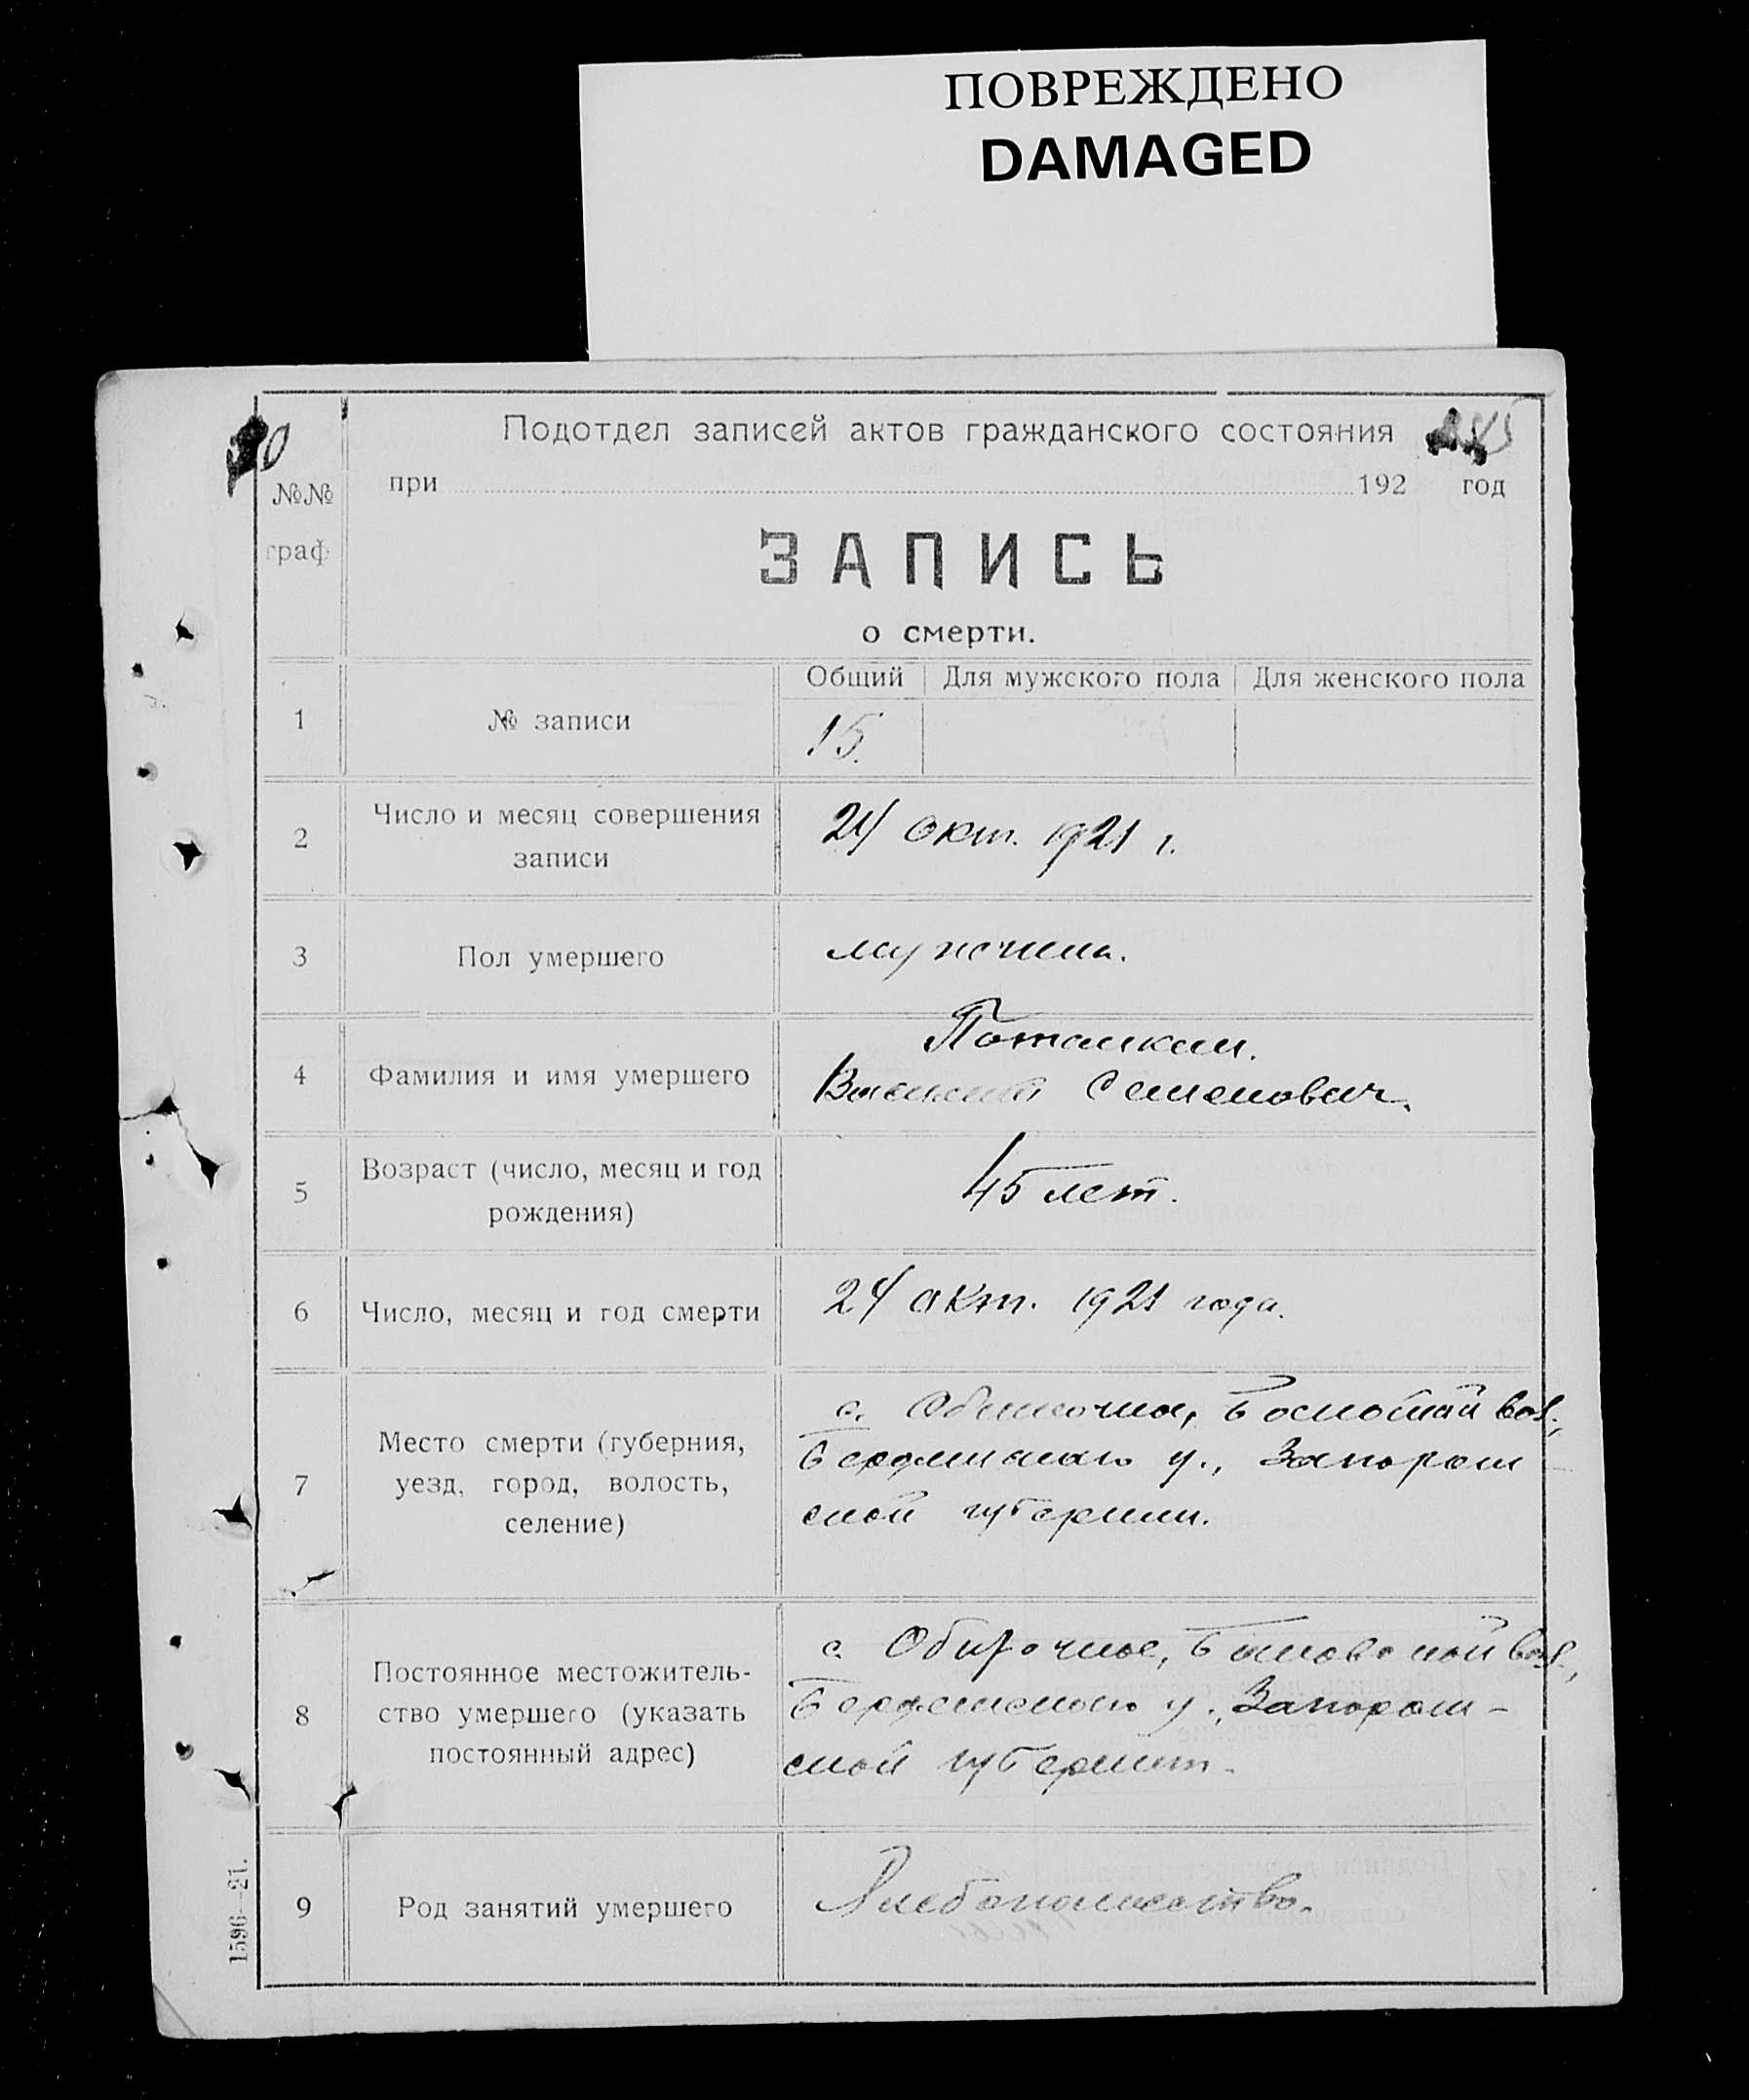 ПОВРЕЖДЕНО
DAMAGED
Подотдел записей актов гражданского состояния
№№ граф
при 192 год
ЗАПИСЬ
о смерти.
Общий Для мужского пола Для женского пола
1 № записи 15.
2 Число и месяц совершения
записи
24 окт. 1921 г.
3 Пол умершего мужчина.
4 Фамилия и имя умершего
Потапкин.
Семенович.
5 Возраст (число, месяц и год
рождения)
45 лет.
6 Число, месяц и год смерти 24 окт. 1921 года.
7 Место смерти (губерния,
уезд, город, волость,
селение)
с. вол.,
Бердянскаго у., Запорож
ской губернии.
8 Постоянное местожитель-
ство умершего (указать
постоянный адрес)
с. Обиточное, вол.,
Бердянскаго у., Запорож-
ской губернии.
9 Род занятий умершего Хлебопашество.
1596—21.